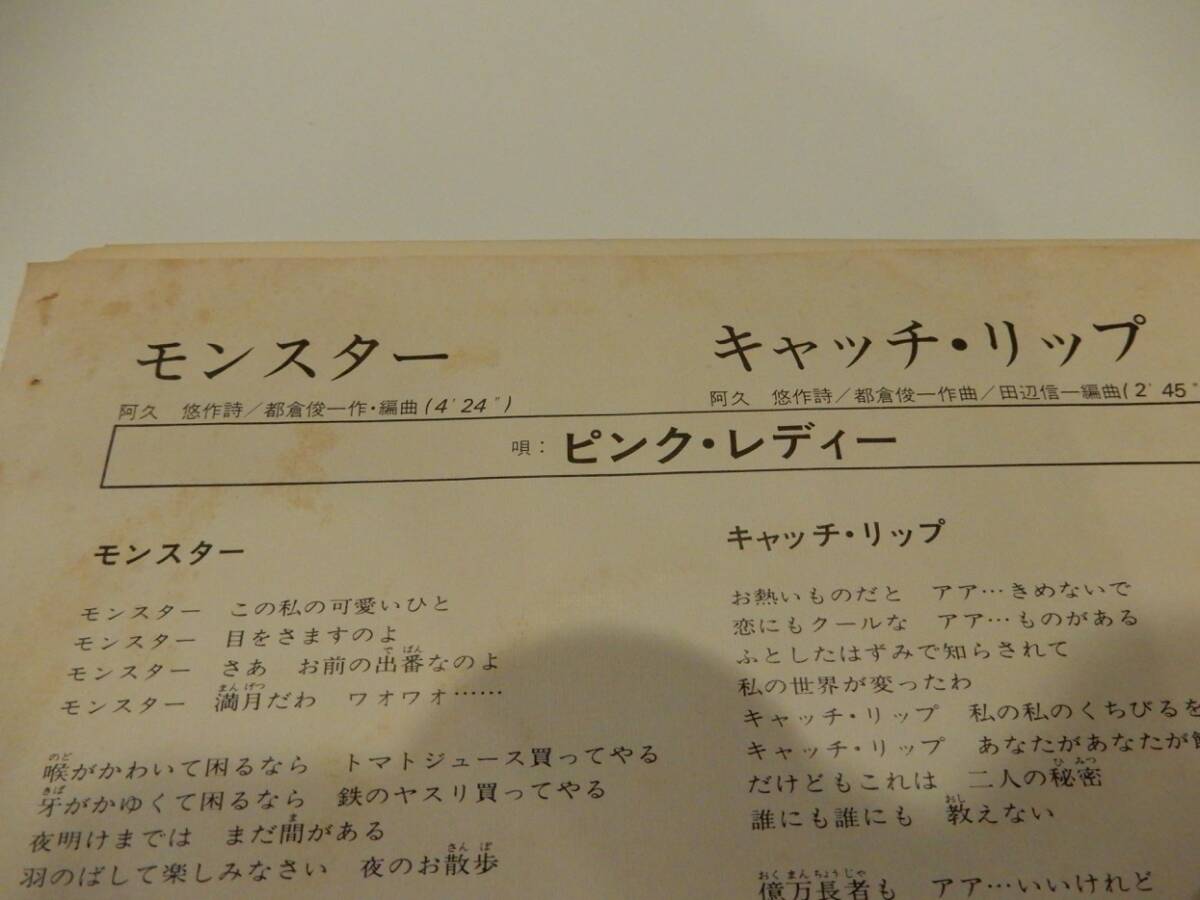 モンスター
阿久 悠作詩/都倉俊一作・編曲(4'24")
キャッチ・リップ
阿久 悠作詩/都倉俊一作曲/田辺信一編曲(2'45"
唄:ピンク・レディー
モンスター
モンスター この私の可愛いひと
モンスター 目をさますのよ
モンスター さあ お前の出番なのよ
モンスター 満月だわ ワオワォ……
喉がかわいて困るなら トマトジュース買ってやる
牙がかゆくて困るなら 鉄のヤスリ買ってやる
夜明けまでは まだ間がある
羽のばして楽しみなさい 夜のお散歩
キャッチ・リップ
お熱いものだと アア…きめないで
恋にもクールな アア…ものがある
ふとしたはずみで知らされて
私の世界が変ったわ
キャッチ・リップ 私の私のくちびるを
キャッチ・リップ あなたがあなたが
だけどもこれは 二人の秘密
誰にも誰にも 教えない
億万長者も アア…いいけれど